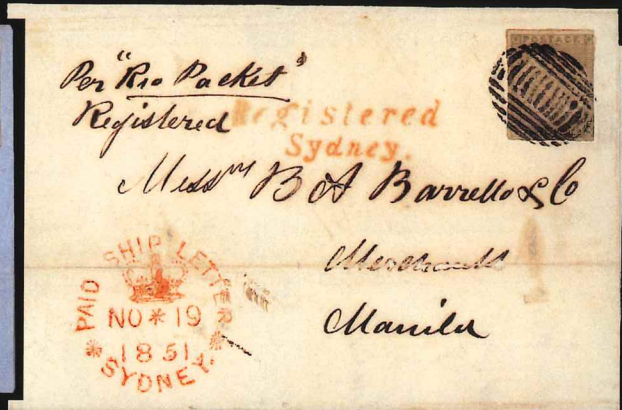 Per "Rio Packet"
Registered
Registered
Sydney.
POSTAGE
Messrs B A Barretto & Co
Merchants
Manila
PAID SHIP LETTER
NO * 19
1851
* SYDNEY. *